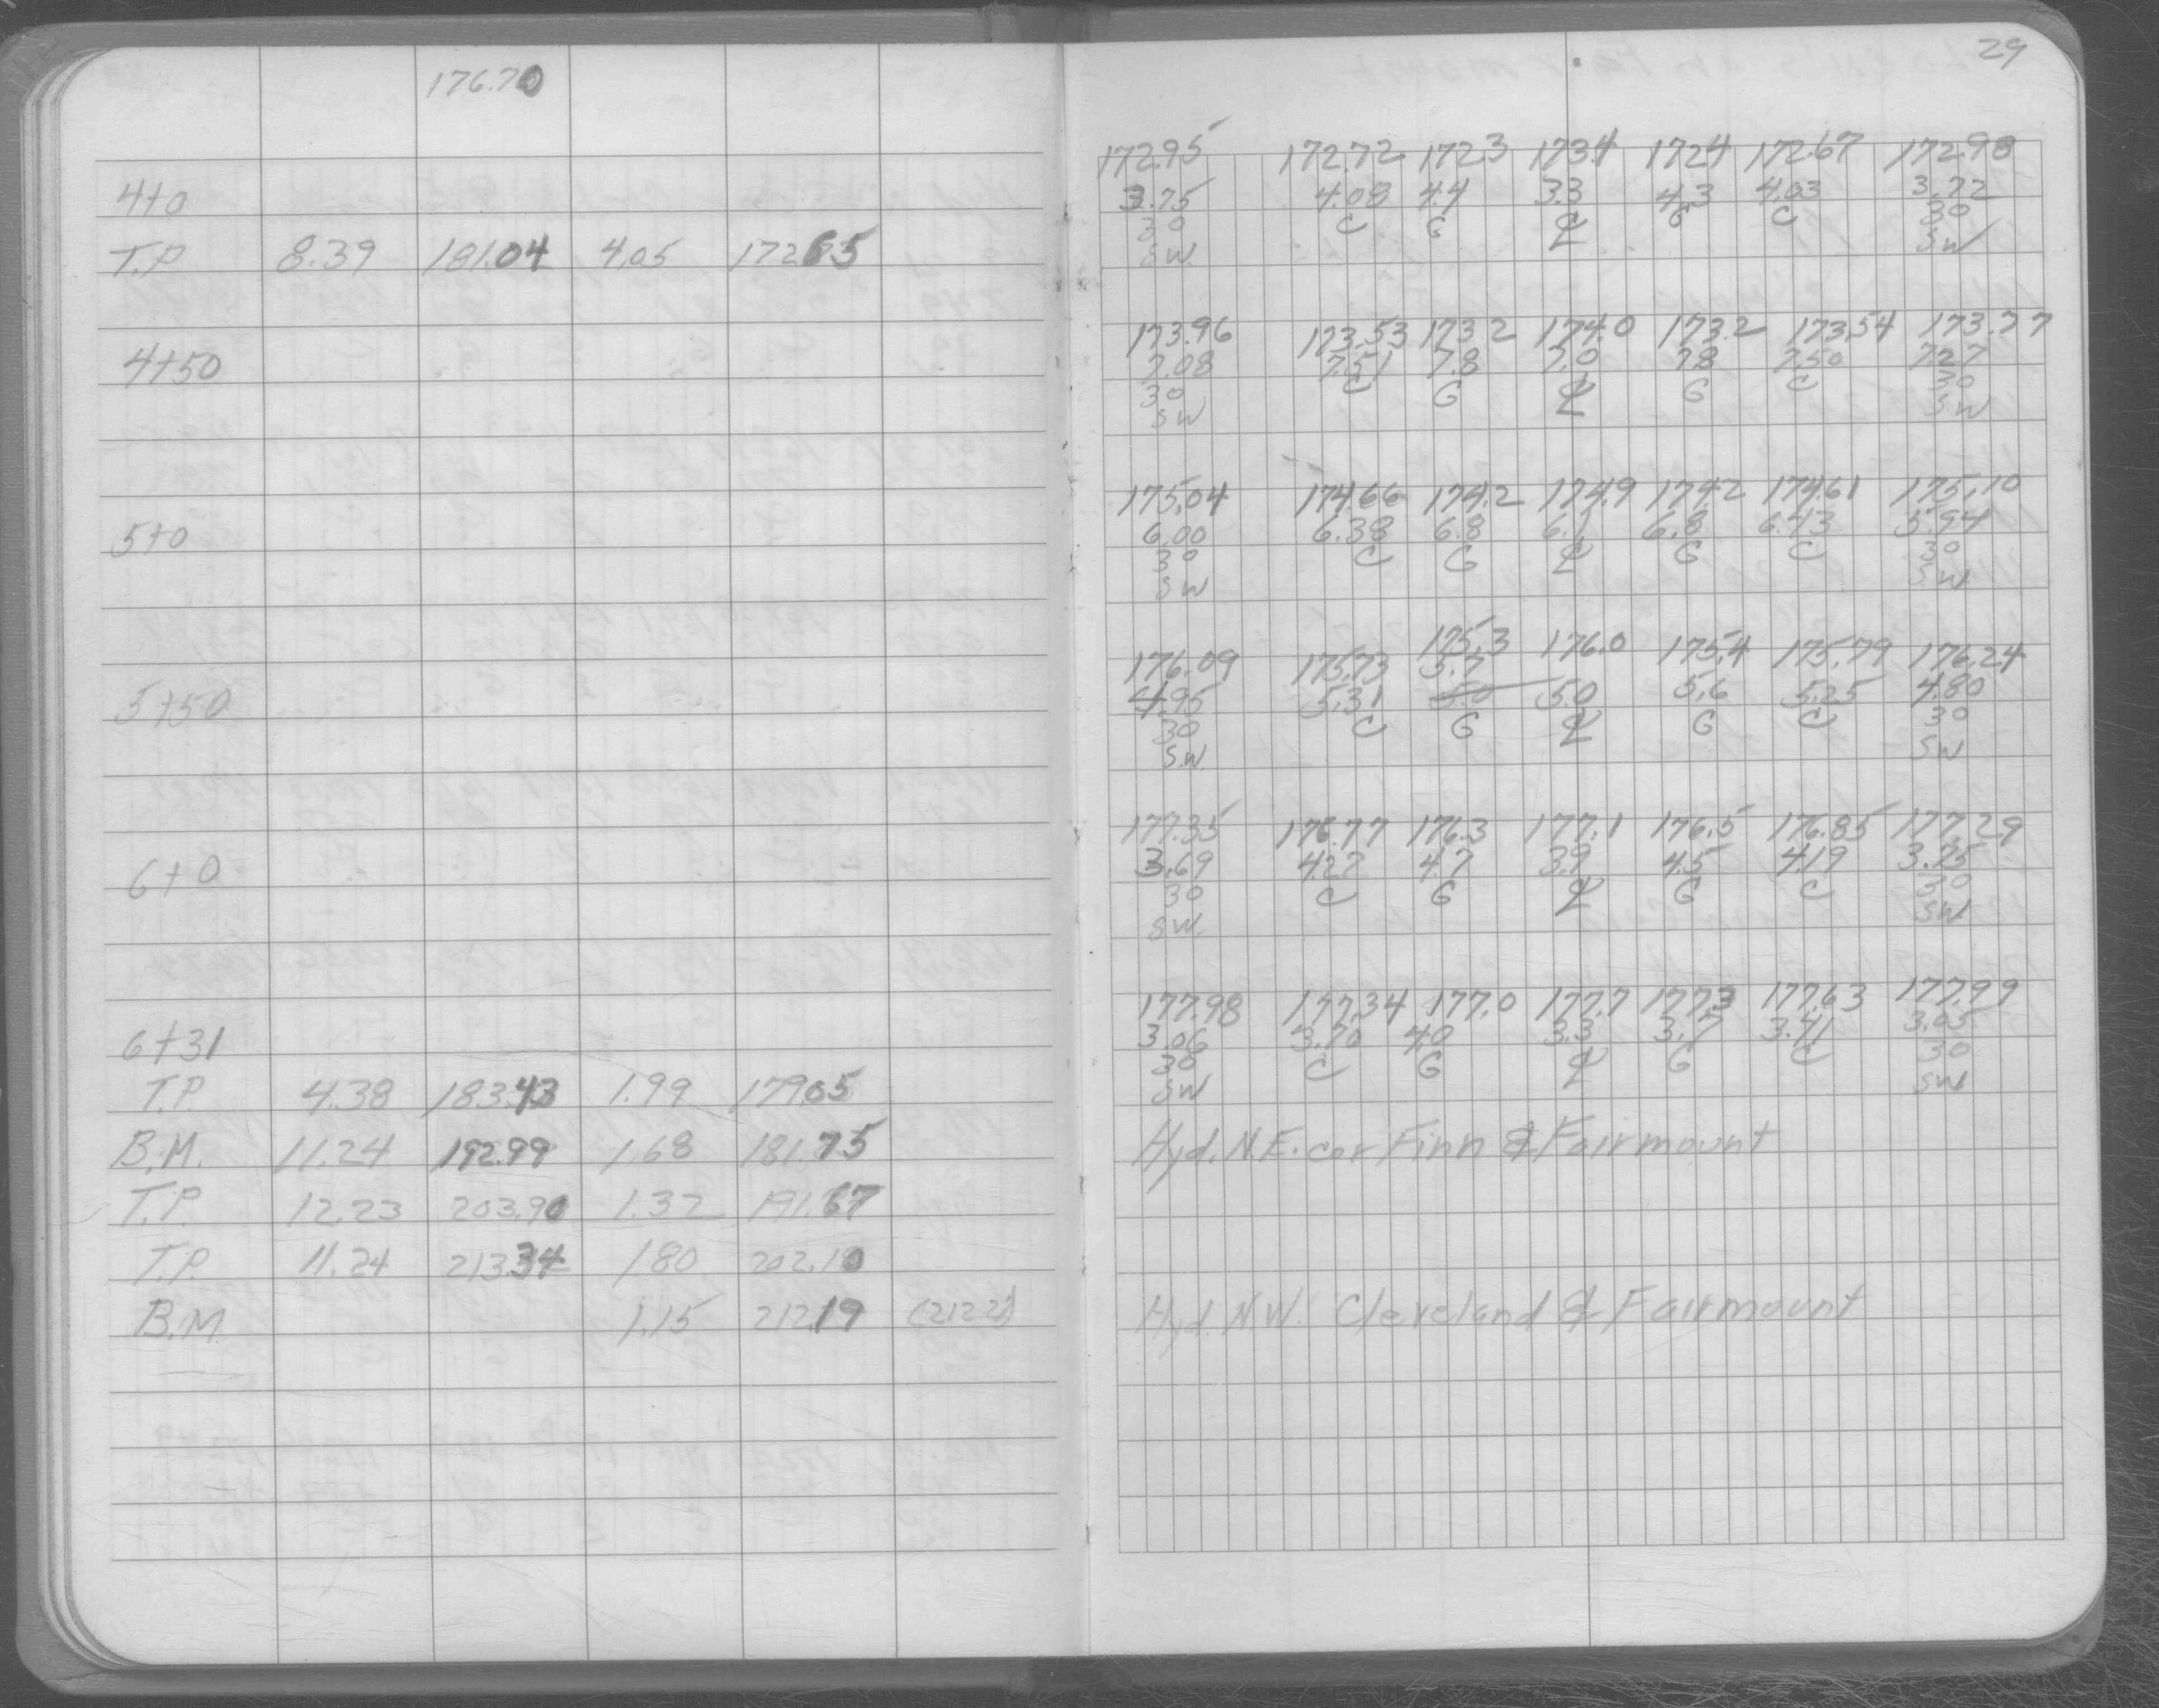 176.70
4+0
T.P. 8.39 181.04 4.05 172.65
4+50
5+0
5+50
6+0
6+31
T.P. 4.38 183.43 1.99 179.05
B.M. 11.24 192.99 1.68 181.75
T.P. 12.23 203.90 1.32 191.67
T.P. 11.24 213.34 1.80 202.10
B.M. 1.15 212.19 (212.21)
29
172.95 172.72 172.3 173.4 172.4 172.67 172.98
3.75 4.08 4.4 3.3 4.3 4.03 3.72
30 C G ℄ G C 30
SW SW
173.96 173.53 173.2 174.0 173.2 173.54 173.77
7.08 7.51 7.8 7.0 7.8 7.50 7.27
30 C G ℄ G C 30
SW SW
175.04 174.66 174.2 174.9 174.2 174.61 175.10
6.00 6.38 6.8 6.1 6.8 6.43 5.94
30 C G ℄ G C 30
SW SW
176.09 175.73 175.3 176.0 175.4 175.79 176.24
5.7
4.95 5.31 5.0 5.0 5.6 5.25 4.80
30 C G ℄ G C 30
SW SW
177.35 176.77 176.3 177.1 176.5 176.85 177.29
3.69 4.27 4.7 3.9 4.5 4.19 3.75
30 C G ℄ G C 30
SW SW
177.98 177.34 177.0 177.7 177.3 177.63 177.99
3.06 3.70 4.0 3.3 3.7 3.41 3.05
30 C G ℄ G C 30
SW SW
Hyd. N.E. cor Finn & Fairmount
Hyd. N.W. Cleveland & Fairmount